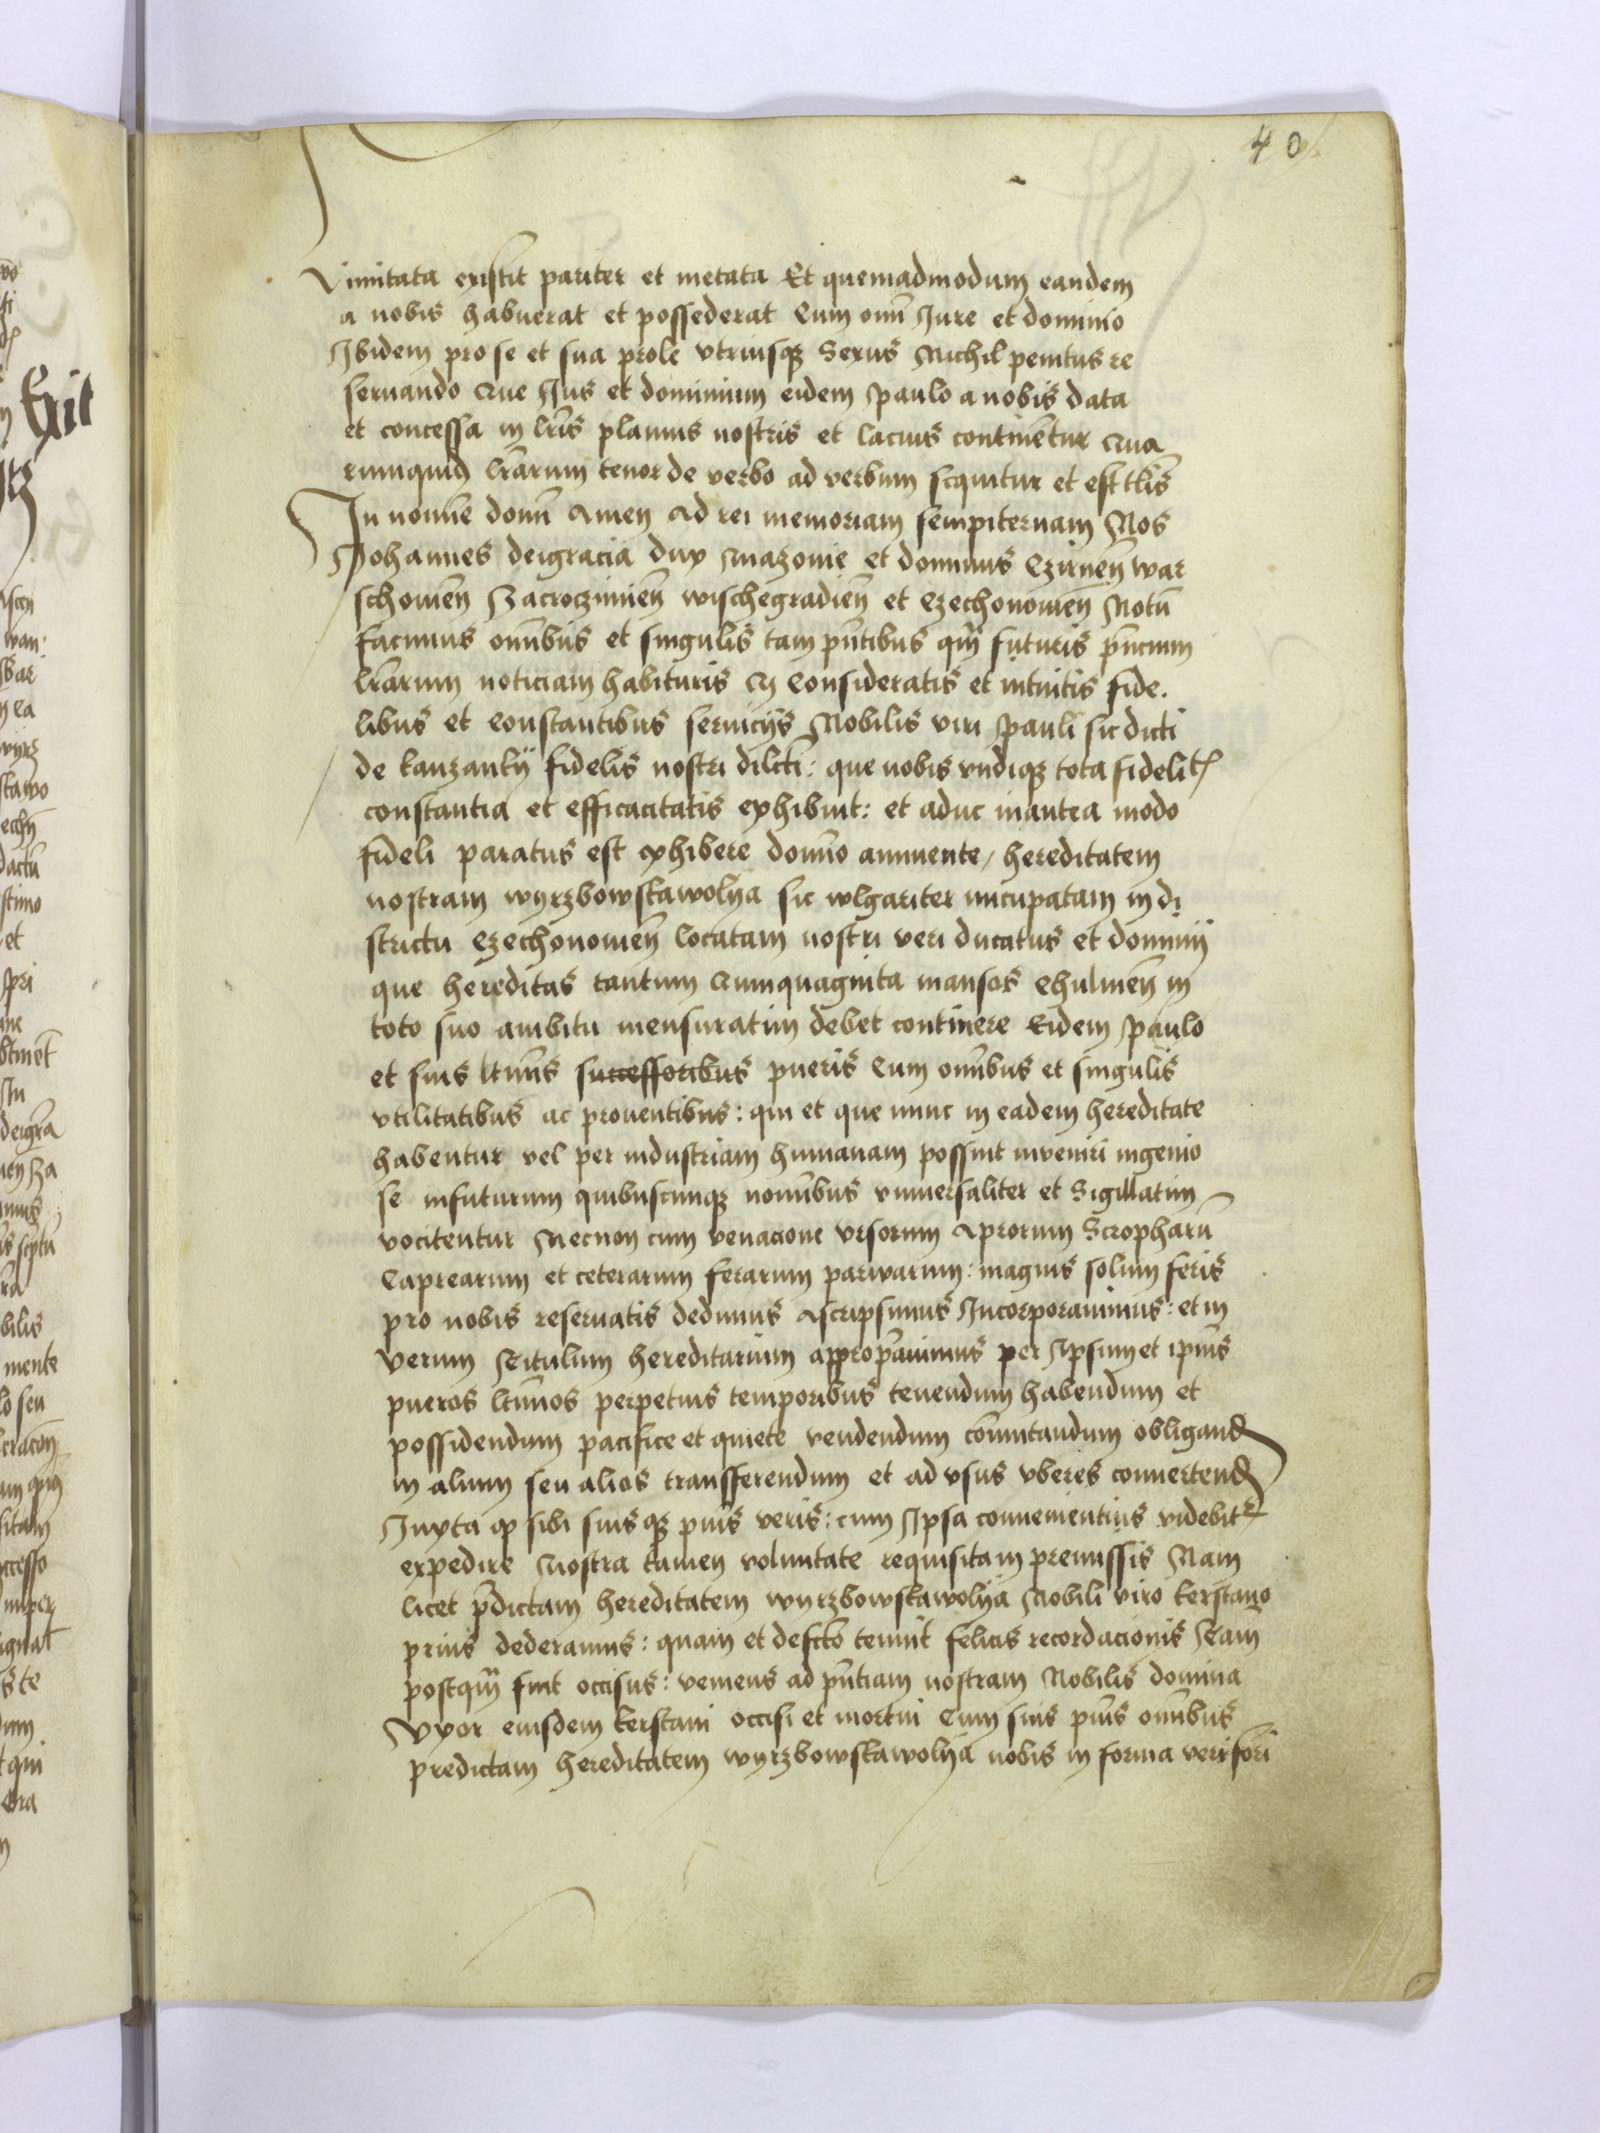 40
limitata existit pariter et metata Et quemadmodum eandem
a nobis habuerat et possederat Cum omī Jure et dominio
Jbidem pro se et sua prole vtriusqꝫ Sexus Nichil penitus re
seruando Que Jus et dominium eidem Paulo a nobis data
et concessa in lr̄is planius nostris et lacius continentur Qua
rumquid lr̄arum tenor de verbo ad verbum sequitur et est tl̄is
In noīe domī Amen Ad rei memoriam sempiternam Nos
Johannes deigracia dux Mazouie et dominus Czirneñ war
schouieñ Zacroczimieñ wischegradieñ et Czechonouieñ Notū
facimus om̄ibus et singulis tam pn̄tibus qm̄ futuris pn̄cium
lr̄arum noticiam habituris Q Consideratis et intuitis fide.
libus et Constantibus seruicijs Nobilis viri Pauli sic dicti
de kanzanky fidelis nostri dilcti: que nobis vndiqꝫ tota fidelit
constantia et efficacitatis exhibuit: et aduc inantea modo
fideli paratus est exhibere domīo annuente / hereditatem
nostram wyrzbowskawolya sic wlgariter nucupatam in di
strictu Czechonouieñ locatam nostri veri ducatus et dominij
que hereditas tantum Quinquaginta mansos Chulmeñ in
toto suo ambitu mensuratim debet continere Eidem Paulo
et suis ltīmis successoribus pueris Cum om̄ibus et singulis
vtilitatibus ac prouentibus: qui et que nunc in eadem hereditate
habentur vel per industriam humanam possint inveniri ingenio
se infuturum quibuscumqꝫ nomībus vniuersaliter et Sigillatim
vocitentur Necnon cum venacione vrsorum Aprorum Scropharū
Caprearum et ceterarum ferarum parwarum: magnis solum feris
pro nobis reseruatis dedimus Ascripsimus Jncorporauimus: et in
verum Titulum hereditarium appropāuimus per Jpsum et ipīus
pueros ltīmos perpetuis temporibus tenendum habendum et
possidendum pacifice et quiete vendendum com̄utandum obligand
in alium seu alios transfferendum et ad vsus vberes conuertend
Juxta qꝫ sibi suisqꝫ puis veris: cum Jpsa conuenientius videbitr
expedire Nostra tamen voluntate requisitam premissis Nam
licet pd̄ictam hereditatem wyrzbowskawolya Nobili viro kerstano
prius dederamus: quam et defcto tenuit felicis recordacionis Tam
postqm̄ fuit occisus: veniens ad pn̄tiam nostram Nobilis domina
Vxor eiusdem kerstani occisi et mortui Cum suis puīs om̄ibus
predictam hereditatem wyrzbowskawolya nobis in forma veri fori